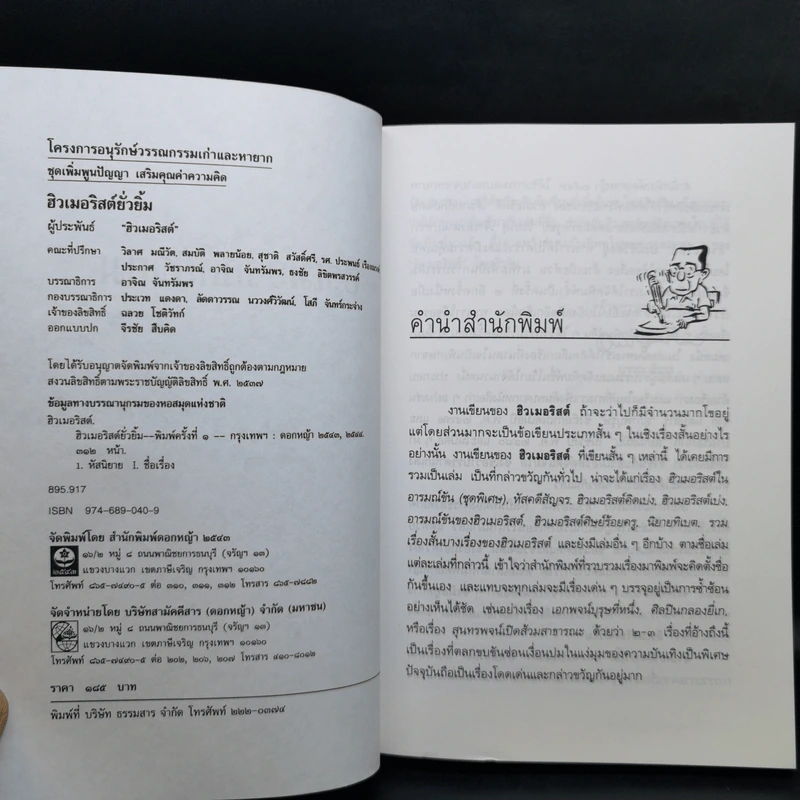 โครงการอนุรักษ์วรรณกรรมเก่าและหายาก
ชุดเพิ่มพูนปัญญา เสริมคุณค่าความคิด
ฮิวเมอริสต์ยั่วยิ้ม
ผู้ประพันธ์ "ฮิวเมอริสต์"
คณะที่ปรึกษา วิลาศ มณีวัต, สมบัติ พลายน้อย, สุชาติ สวัสดิ์ศรี, รศ. ประพนธ์
ประกาศ วัชราภรณ์, อาจิณ จันทรัมพร, ธงชัย ลิขิตพรสวรรค์
บรรณาธิการ อาจิณ จันทรัมพร
กองบรรณาธิการ ประเวท แดงดา, ลัดดาวรรณ นววงศ์วิวัฒน์, โสภี จันทร์กระจ่าง
เจ้าของลิขสิทธิ์ ฉลวย โชติวิทก์
ออกแบบปก จีรชัย สืบคิด
โดยได้รับอนุญาตจัดพิมพ์จากเจ้าของลิขสิทธิ์ถูกต้องตามกฎหมาย
สงวนลิขสิทธิ์ตามพระราชบัญญัติลิขสิทธิ์ พ.ศ. ๒๕๓๗
ข้อมูลทางบรรณานุกรมของหอสมุดแห่งชาติ
ฮิวเมอริสต์.
ฮิวเมอริสต์ยั่วยิ้ม--พิมพ์ครั้งที่ ๑ -- กรุงเทพฯ : ดอกหญ้า ๒๕๔๓, ๒๕๔๔.
๓๑๒ หน้า.
1. หัสนิยาย I. ชื่อเรื่อง
895.917
ISBN 974-689-040-9
จัดพิมพ์โดย สำนักพิมพ์ดอกหญ้า ๒๕๔๓
๑๖/๒ หมู่ ๘ ถนนพาณิชยการธนบุรี (จรัญฯ ๑๓)
แขวงบางแวก เขตภาษีเจริญ กรุงเทพฯ ๑๐๑๖๐
โทรศัพท์ ๘๖๕-๗๔๙๐-๕ ต่อ ๓๑๐, ๓๑๑, ๓๑๒ โทรสาร ๘๖๕-๗๔๘๒
๒๕๔๓
จัดจำหน่ายโดย บริษัทสามัคคีสาร (ดอกหญ้า) จำกัด (มหาชน)
๑๖/๒ หมู่ ๘ ถนนพาณิชยการธนบุรี (จรัญฯ ๑๓)
แขวงบางแวก เขตภาษีเจริญ กรุงเทพฯ ๑๐๑๖๐
โทรศัพท์ ๘๖๕-๗๔๙๐-๕ ต่อ ๒๐๒, ๒๐๖, ๒๐๗ โทรสาร ๔๑๐-๘๐๑๒
ราคา ๑๘๕ บาท
พิมพ์ที่ บริษัท ธรรมสาร จำกัด โทรศัพท์ ๒๒๒-๐๓๗๔
คำนำสำนักพิมพ์
งานเขียนของ ฮิวเมอริสต์ ถ้าจะว่าไปก็มีจำนวนมากโขอยู่
แต่โดยส่วนมากจะเป็นข้อเขียนประเภทสั้น ๆ ในเชิงเรื่องสั้นอย่างไร
อย่างนั้น งานเขียนของ ฮิวเมอริสต์ ที่เขียนสั้น ๆ เหล่านี้ ได้เคยมีการ
รวมเป็นเล่ม เป็นที่กล่าวขวัญกันทั่วไป น่าจะได้แก่เรื่อง ฮิวเมอริสต์ใน
อารมณ์ขัน (ชุดพิเศษ), หัสคดีสัญจร, ฮิวเมอริสต์คิดเบ่ง, ฮิวเมอริสต์เบ่ง,
อารมณ์ขันของฮิวเมอริสต์, ฮิวเมอริสต์ศิษย์ร้อยครู, นิยายทิเบต, รวม
เรื่องสั้นบางเรื่องของฮิวเมอริสต์ และยังมีเล่มอื่น ๆ อีกบ้าง ตามชื่อเล่ม
แต่ละเล่มที่กล่าวนี้ เข้าใจว่าสำนักพิมพ์ที่รวบรวมเรื่องมาพิมพ์จะคิดตั้งชื่อ
กันขึ้นเอง และแทบจะทุกเล่มจะมีเรื่องเด่น ๆ บรรจุอยู่เป็นการซ้ำซ้อน
อย่างเห็นได้ชัด เช่นอย่างเรื่อง เอกพจน์บุรุษที่หนึ่ง, ศิลปินกลองยี่เก,
หรือเรื่อง สุนทรพจน์เปิดส้วมสาธารณะ ด้วยว่า ๒-๓ เรื่องที่อ้างถึงนี้
เป็นเรื่องที่ตลกขบขันซ่อนเงื่อนปมในแง่มุมของความบันเทิงเป็นพิเศษ
ปัจจุบันถือเป็นเรื่องโดดเด่นและกล่าวขวัญกันอยู่มาก